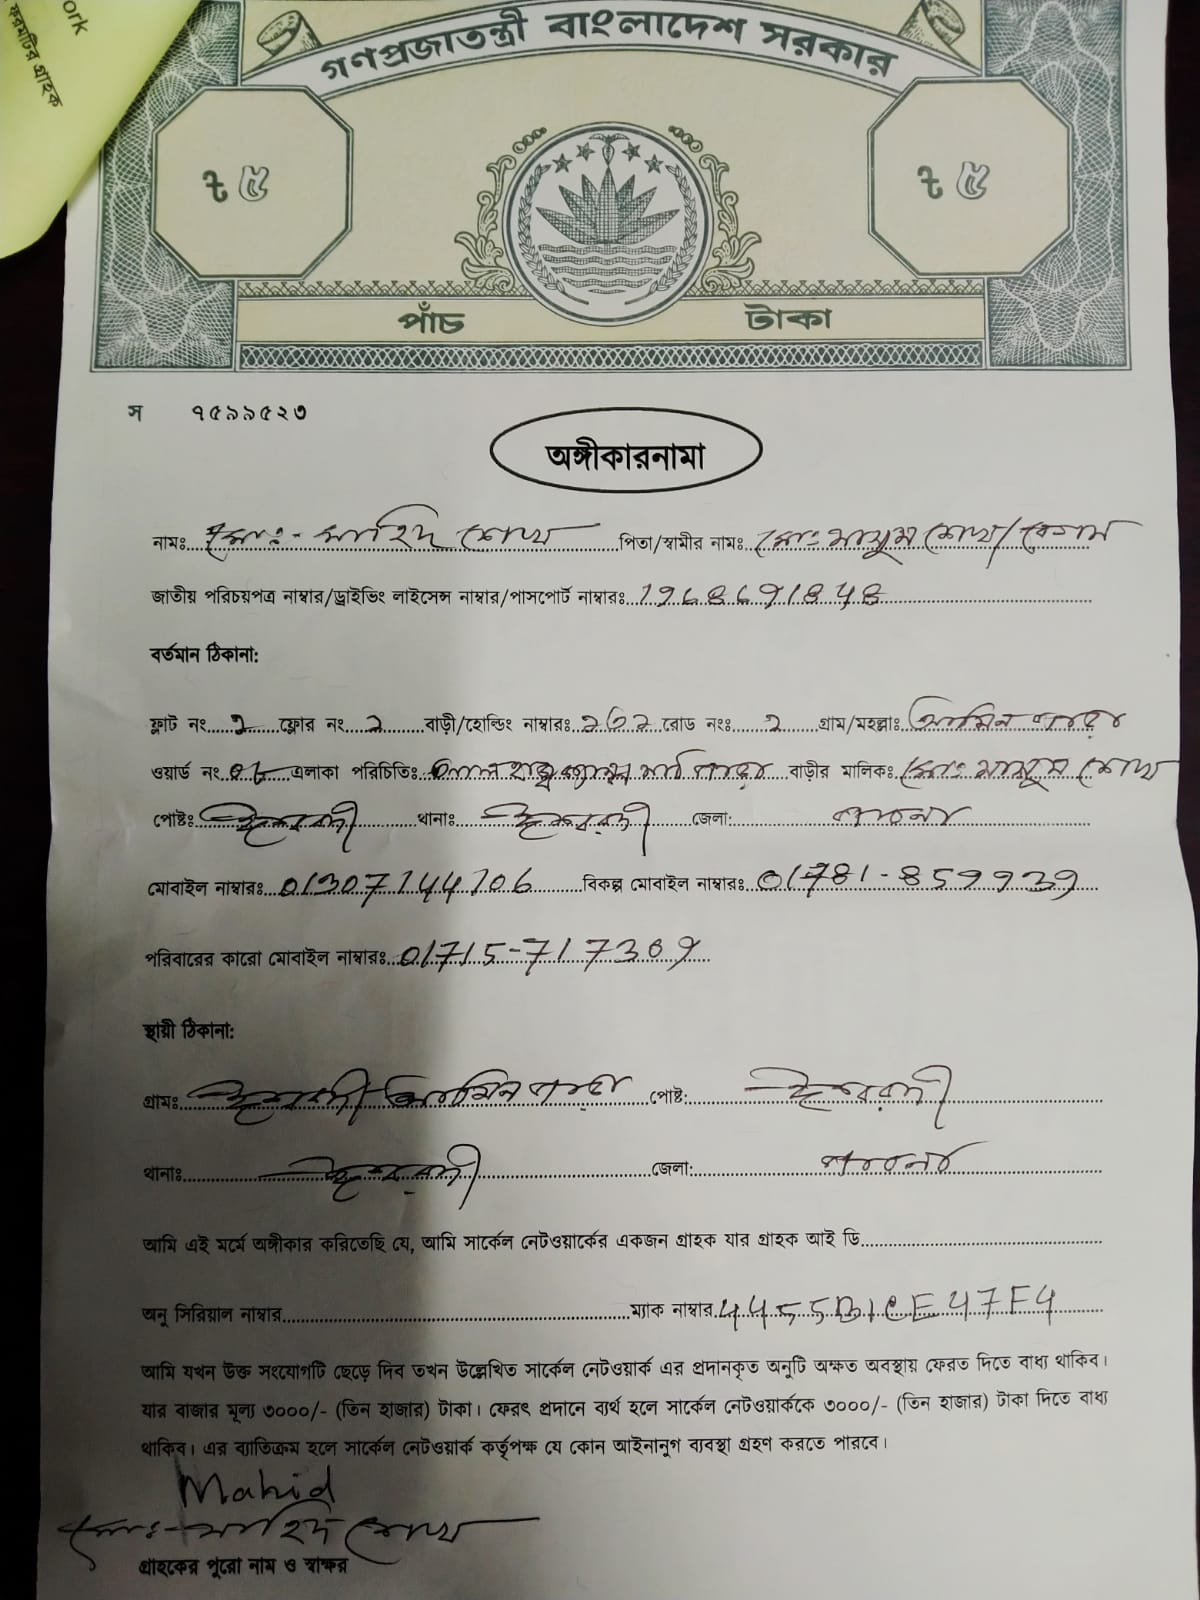 ork
ফরমটির গ্রাহক
গণপ্রজাতন্ত্রী বাংলাদেশ সরকার
৳ ৫
৳ ৫
পাঁচ টাকা
স ৭৫৯৯৫২৩
অঙ্গীকারনামা
নামঃ মোঃ- মাহিদ শেখ পিতা/স্বামীর নামঃ মোঃ মাসুম শেখ/বেগম
জাতীয় পরিচয়পত্র নাম্বার/ড্রাইভিং লাইসেন্স নাম্বার/পাসপোর্ট নাম্বারঃ 1968691848
বর্তমান ঠিকানা:
ফ্লাট নং ২ ফ্লোর নং ২ বাড়ী/হোল্ডিং নাম্বারঃ রোড নংঃ ২ গ্রাম/মহল্লাঃ আমিন পাড়া
ওয়ার্ড নং ০৮ এলাকা পরিচিতিঃ বাড়ীর মালিকঃ মোঃ মাসুম শেখ
পোষ্টঃ ঈশ্বরদী থানাঃ ঈশ্বরদী জেলা: পাবনা
মোবাইল নাম্বারঃ 01307144106 বিকল্প মোবাইল নাম্বারঃ 01781-859939
পরিবারের কারো মোবাইল নাম্বারঃ 01715-717309
স্থায়ী ঠিকানা:
গ্রামঃ ঈশ্বরদী আমিন পাড়া পোষ্ট: ঈশ্বরদী
থানাঃ ঈশ্বরদী জেলা: পাবনা
আমি এই মর্মে অঙ্গীকার করিতেছি যে, আমি সার্কেল নেটওয়ার্কের একজন গ্রাহক যার গ্রাহক আই ডি
অনু সিরিয়াল নাম্বার ম্যাক নাম্বার 4455B1CE47F4
আমি যখন উক্ত সংযোগটি ছেড়ে দিব তখন উল্লেখিত সার্কেল নেটওয়ার্ক এর প্রদানকৃত অনুটি অক্ষত অবস্থায় ফেরত দিতে বাধ্য থাকিব।
যার বাজার মূল্য ৩০০০/- (তিন হাজার) টাকা। ফেরৎ প্রদানে ব্যর্থ হলে সার্কেল নেটওয়ার্ককে ৩০০০/- (তিন হাজার) টাকা দিতে বাধ্য
থাকিব। এর ব্যতিক্রম হলে সার্কেল নেটওয়ার্ক কর্তৃপক্ষ যে কোন আইনানুগ ব্যবস্থা গ্রহণ করতে পারবে।
Mahid
মোঃ-মাহিদ শেখ
গ্রাহকের পুরো নাম ও স্বাক্ষর